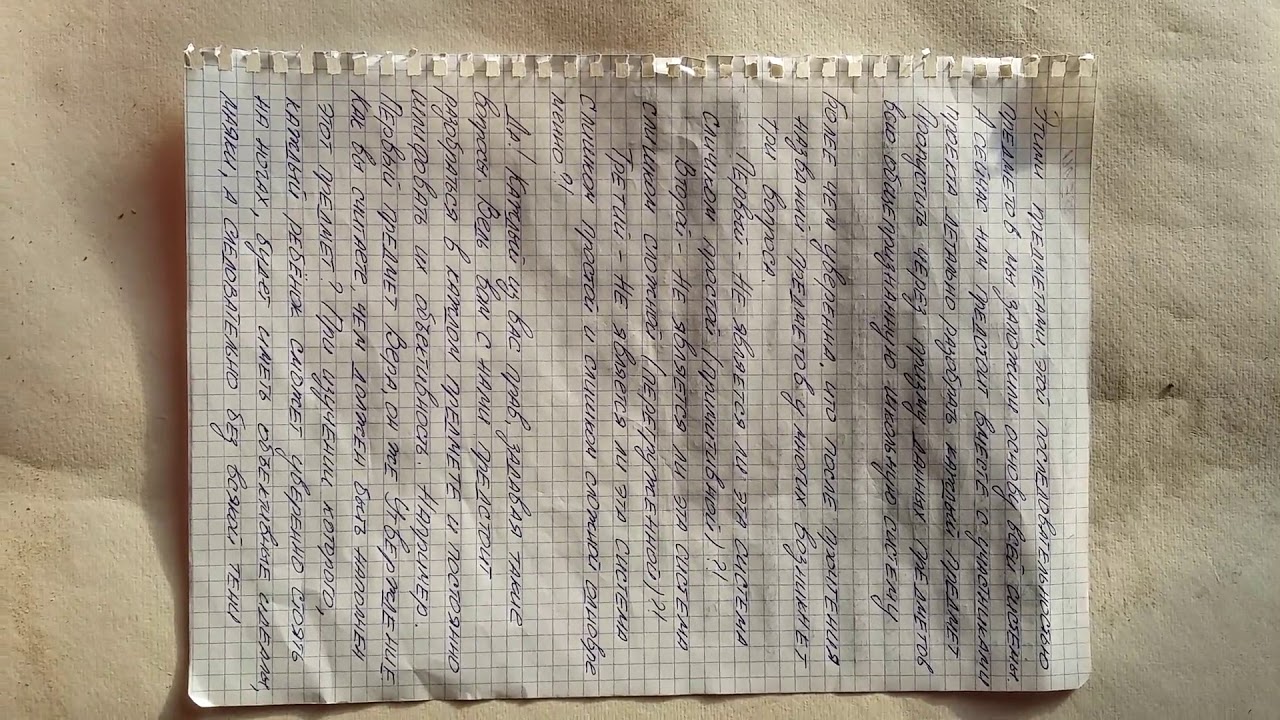 Этими предметами, этой последовательностью
предметов мы заложили основу всей системы.
А сейчас нам предстоит вместе с учениками
предела детально разобрать каждый предмет
Пропустить через призму данных предметов
всю общепризнанную школьную систему
Более чем уверенна, что после прочтения
нувлий предметов у многих возникнет
три вопроса.
Первый - не является ли эта система
слишком простой (примитивной)?!
Второй - не является ли эта система
слишком сложной (перегруженной)?!
Третий - не является ли эта система
слишком простой и слишком сложной одновре
менно?!
Да! Каждый из вас прав, задавая такие
вопросы. Ведь вам с нами предстоит
разобраться в каждом предмете и постоянно
шлифовать их объективность. Например.
Первый предмет Вера, он же Утверждение
Как вы считаете чем должен быть наполнен
этот предмет? При изучении которого,
каждый ребёнок сможет уверенно стоять
на ногах, будет иметь объективные идеалы,
маяки, а следовательно без всякой тени